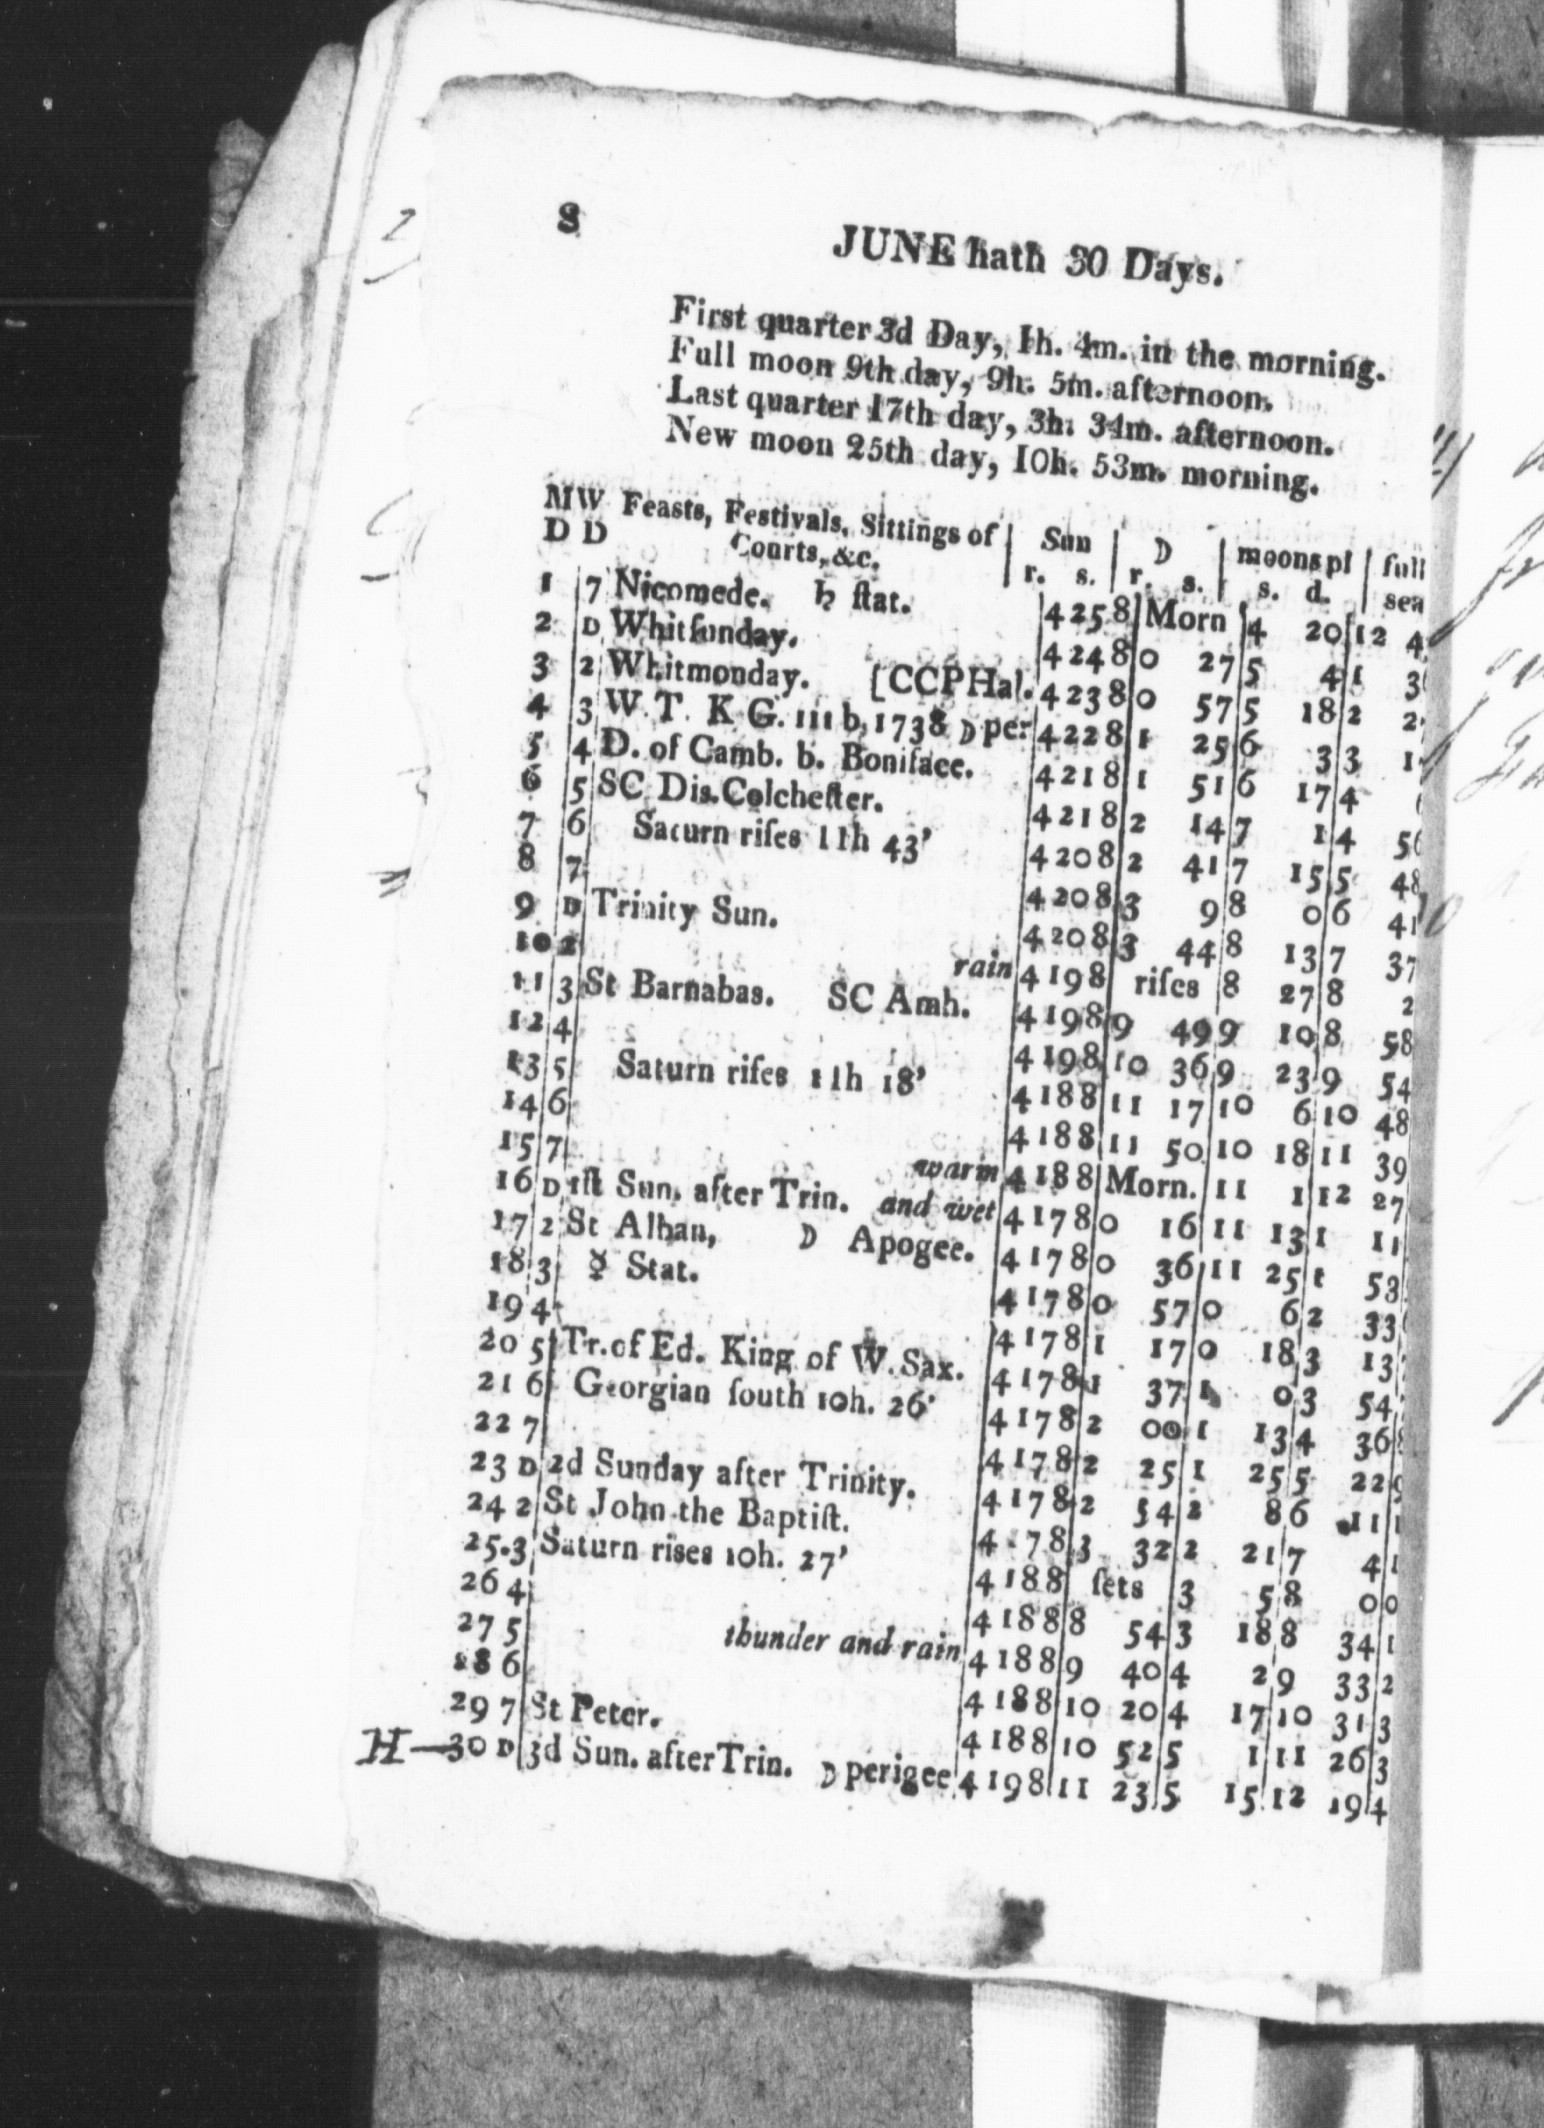 8
JUNE hath 30 Days.
First quarter 3d Day, 1h. 4m. in the morning.
Full moon 9th day, 9h. 5m. afternoon.
Last quarter 17th day, 3h. 34m. afternoon.
New moon 25th day, 10h. 53m. morning.
MW Feasts, Festivals, Sittings of | Sun | ☽ | moons pl | full
D D Courts, &c. r. s. | r. s. | s. d. | sea
1 7 Nicomede. ♄ ſtat. 4 25 8 Morn 4 20 12 4
2 D Whitſunday. 4 24 8 0 27 5 4 1 3
3 2 Whitmonday. [CCPHal. 4 23 8 0 57 5 18 2 2
4 3 W. T. K G. III b, 1738 ☽ per 4 22 8 1 25 6 3 3 1
5 4 D. of Camb. b. Boniface. 4 21 8 1 51 6 17 4
6 5 SC Dis. Colcheſter. 4 21 8 2 14 7 1 4 5
7 6 Saturn riſes 11h 43' 4 20 8 2 41 7 15 5 48
8 7 4 20 8 3 9 8 0 6 41
9 D Trinity Sun. 4 20 8 3 44 8 13 7 37
10 2 rain 4 19 8 riſes 8 27 8 2
11 3 St Barnabas. SC Amh. 4 19 8 9 49 9 10 8 58
12 4 4 19 8 10 36 9 23 9 54
13 5 Saturn riſes 11h 18' 4 18 8 11 17 10 6 10 48
14 6 4 18 8 11 50 10 18 11 39
15 7 warm 4 18 8 Morn. 11 1 12 27
16 D 1ſt Sun. after Trin. and wet 4 17 8 0 16 11 13 1 11
17 2 St Alban, ☽ Apogee. 4 17 8 0 36 11 25 1 53
18 3 ☿ Stat. 4 17 8 0 57 0 6 2 33
19 4 4 17 8 1 17 0 18 3 13
20 5 Tr. of Ed. King of W. Sax. 4 17 8 1 37 1 0 3 54
21 6 Georgian ſouth 10h. 26' 4 17 8 2 00 1 13 4 36
22 7 4 17 8 2 25 1 25 5 22
23 D 2d Sunday after Trinity. 4 17 8 2 54 2 8 6 11
24 2 St John the Baptiſt. 4 17 8 3 32 2 21 7 4
25 3 Saturn rises 10h. 27' 4 18 8 ſets 3 5 8 0
26 4 4 18 8 8 54 3 18 8 34
27 5 thunder and rain 4 18 8 9 40 4 2 9 33
28 6 4 18 8 10 20 4 17 10 31
29 7 St Peter. 4 18 8 10 52 5 1 11 26
H — 30 D 3d Sun. after Trin. ☽ perigee 4 19 8 11 23 5 15 12 19